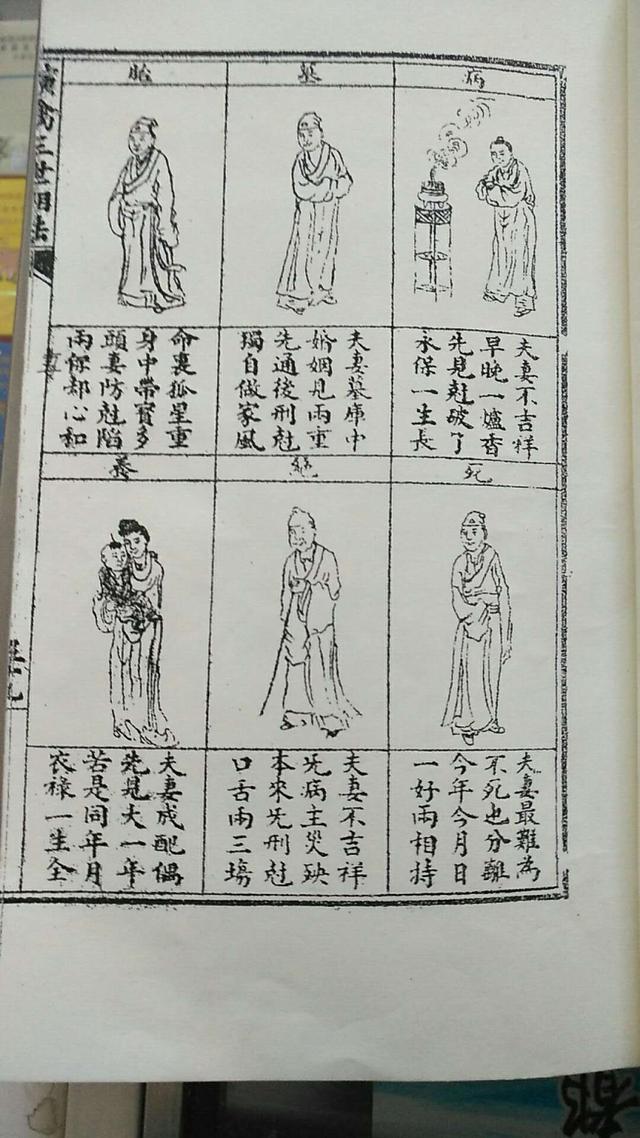 病
夫妻不吉祥
早晚一爐香
先見尅破了
永保一生長
墓
夫妻墓庫中
婚姻見兩重
先通後刑尅
獨自做家風
胎
命裏孤星重
身中帶寶多
頭妻防尅陷
兩保却心和
死
夫妻最難為
不死也分離
今年今月日
一好兩相持
絕
夫妻不吉祥
先病主災殃
本來先刑尅
口舌兩三場
養
夫妻成配偶
先見大一年
若是同年月
衣祿一生全
演禽三世相法
都